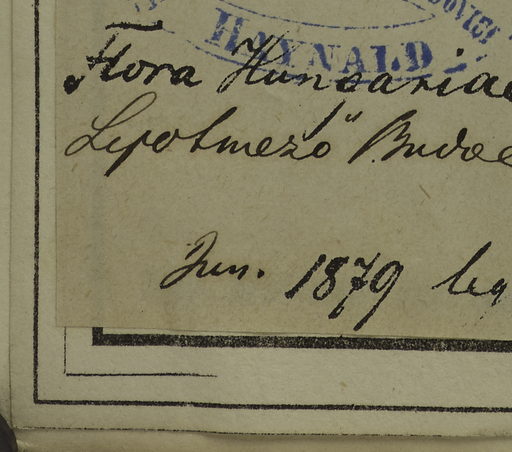 DOVICI
HAYNALD
Flora Hungariae
Lipotmező Budae
Jun. 1879 leg